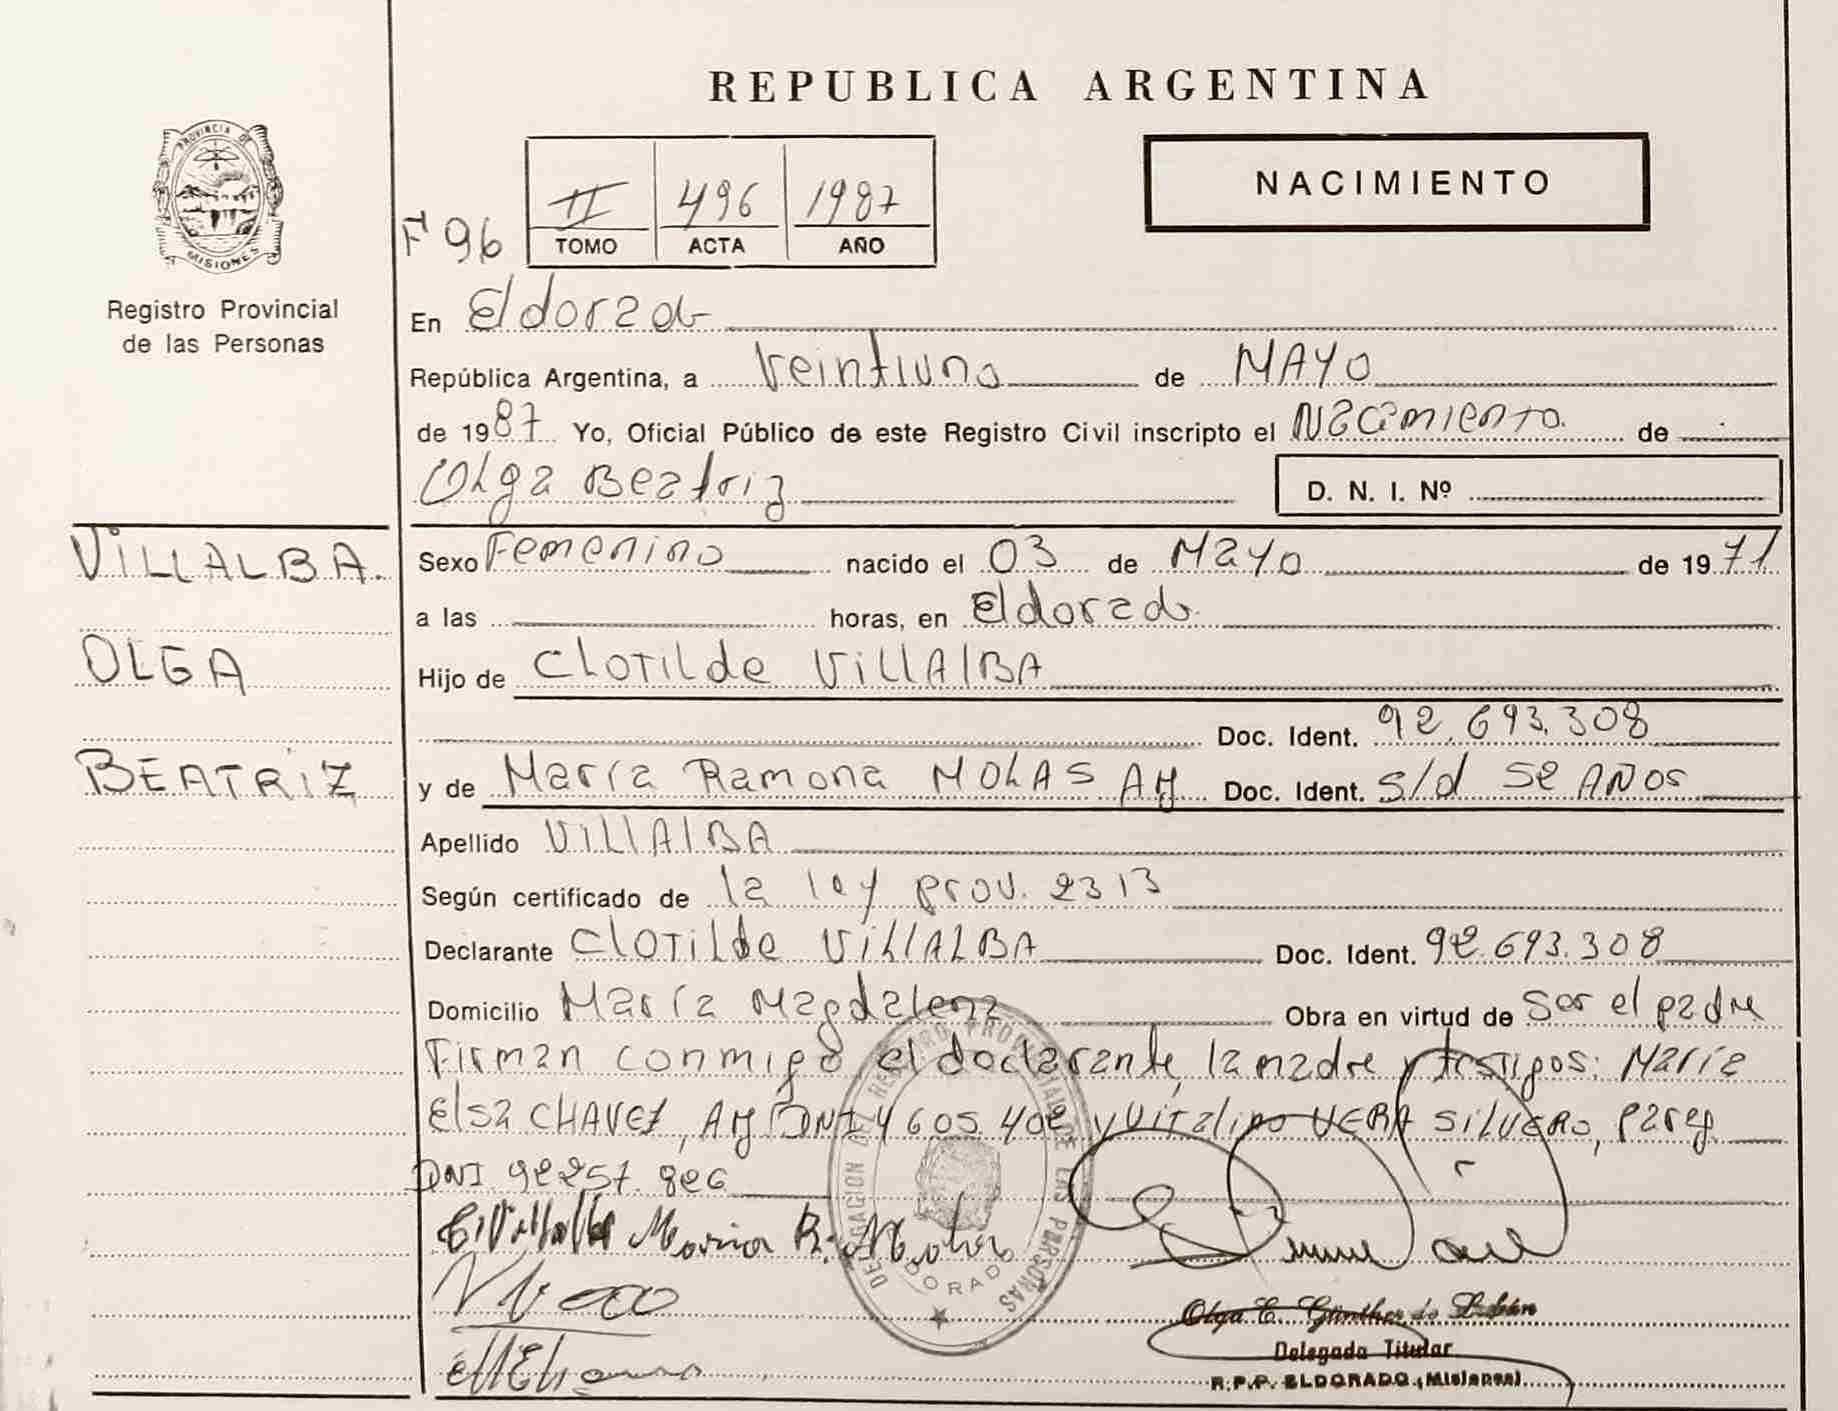 REPUBLICA ARGENTINA
PROVINCIA DE
MISIONES
Registro Provincial
de las Personas
NACIMIENTO
Fº 96
II 496 1987
TOMO ACTA AÑO
En Eldorado
República Argentina, a veintiuno de MAYO
de 1987 Yo, Oficial Público de este Registro Civil inscripto el Nacimiento de
Olga Beatriz
D. N. I. Nº
VILLALBA.
OLGA
BEATRIZ
Sexo Femenino nacido el 03 de Mayo de 1971
a las horas, en Eldorado
Hijo de Clotilde VillAlBA
Doc. Ident. 92.693.308
y de María Ramona MOLAS Arg Doc. Ident. s/d 52 AÑOS
Apellido VillAlBA
Según certificado de la ley prov. 2313
Declarante Clotilde VillALBA Doc. Ident. 92.693.308
Domicilio María Magdalena Obra en virtud de ser el padre
Firman conmigo el declarante, la madre y testigos: María
Elsa CHAVEZ, Arg DNI 4605.402 y Vitalino VERA SilVERO, parag.
DNI 92257.826
C Villalba María R. Molas
DELEGACION DEL REGISTRO PROVINCIAL DE LAS PERSONAS
ELDORADO
Olga E. Günther de
Delegada Titular
R.P.P. ELDORADO (Misiones)